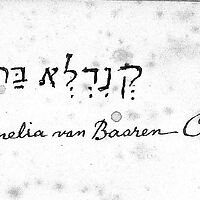 קֶנְדְלְא בַּר
nelia van Baaren C